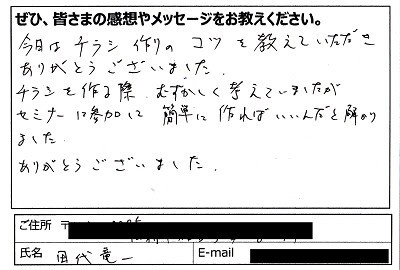 ぜひ、皆さまの感想やメッセージをお教えください。
今日は チラシ 作りの コツ を 教えていただき
ありがとうございました。
チラシを作る際、むずかしく考えていましたが
セミナーに参加に 簡単に 作ればいいんだと解かり
ました。
ありがとうございました。
ご住所 〒
氏名 田代竜一 E-mail